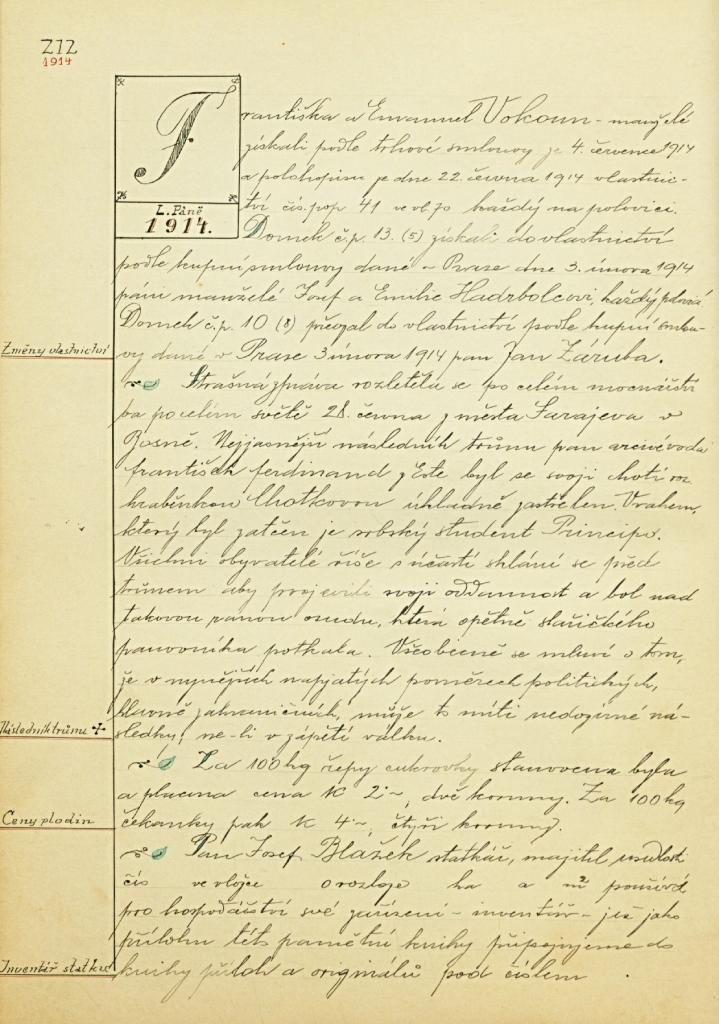 212
1914
Františka a Emanuel Vokoun - manželé
získali podle trhové smlouvy ze 4. července 1914
a polohopisu ze dne 22. června 1914 vlastnic-
tví čís. pop. 41 ve vl. 70 každý na polovici.
L. Páně
1914.
Domek č.p. 13. (5) získali do vlastnictví
podle kupní smlouvy dané v Praze dne 3. února 1914
páni manželé Josef a Emilie Hadrbolcovi, každý
Domek č.p. 10 (8) převzal do vlastnictví podle kupní smlou-
Změny vlastnictví
vy dané v Praze 3 února 1914 pan Jan Záruba.
Strašná zpráva rozletěla se po celém mocnářství
ba po celém světě 28. června z města Sarajeva v
Bosně. Nejjasnější následník trůnu pan arcivévoda
František Ferdinand z Este byl se svojí chotí roz.
hraběnkou Chotkovou úkladně zastřelen. Vrahem,
který byl zatčen je srbský student Principo.
Všichni obyvatelé říše s účastí shlání se před
trůnem aby projevili svoji oddanost a bol nad
takovou ranou osudu, která opětně stařičkého
panovníka potkala. Všeobecně se mluví o tom,
že v nynějších napjatých poměrech politických,
hlavně zahraničních, může to míti nedozírné ná-
Následník trůnu ✢
sledky, ne-li v zápětí válku.
Za 100 kg řepy cukrovky stanovena byla
a placena cena K 2·~, dvě koruny. Za 100 kg
Ceny plodin
čekanky pak K 4·~, čtyři koruny.
Pan Josef Blažek statkář, majitel usedlosti
čís ve vložce o rozloze ha a m² používá
pro hospodářství své zařízení - inventář - jež jako
přílohu této pamětní knihy připojujeme do
Inventář statku
knihy příloh a originálů pod číslem .